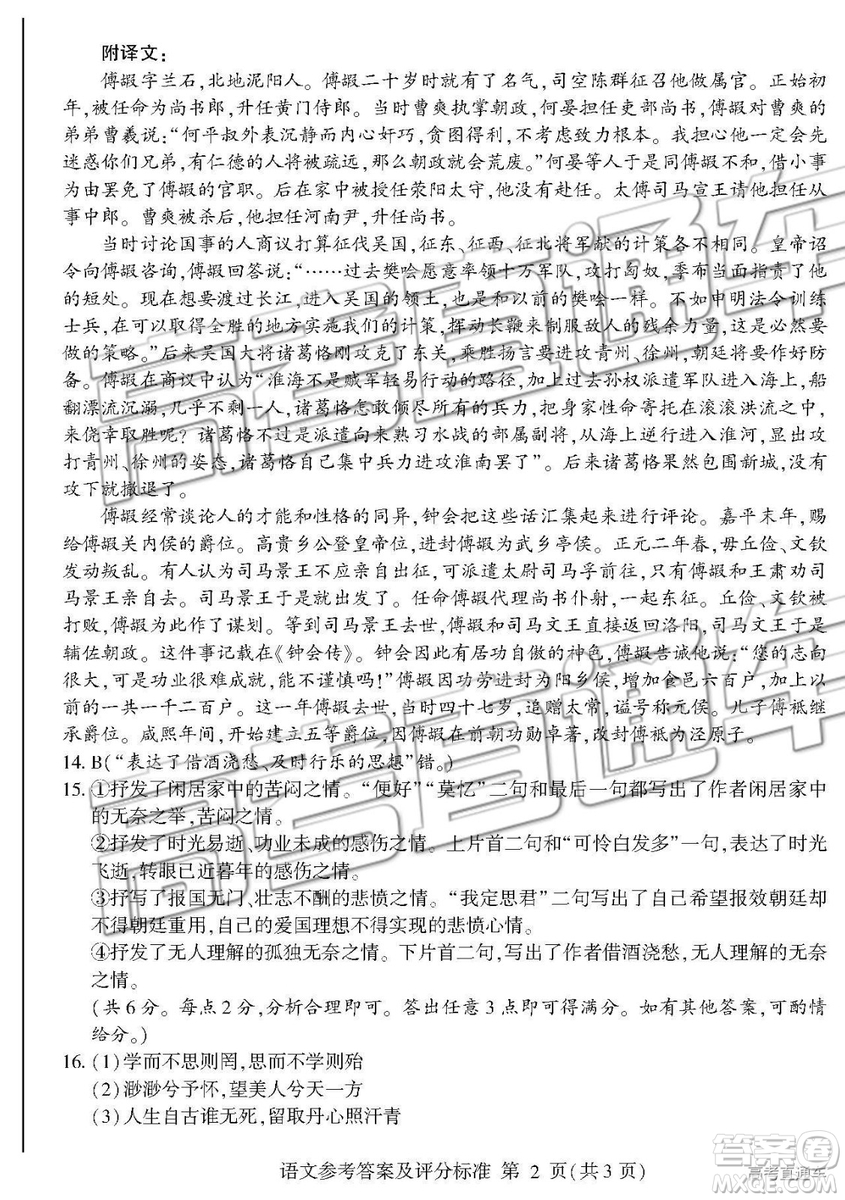 附译文：
傅嘏字兰石，北地泥阳人。傅嘏二十岁时就有了名气，司空陈群征召他做属官。正始初
年，被任命为尚书郎，升任黄门侍郎。当时曹爽执掌朝政，何晏担任吏部尚书，傅嘏对曹爽的
弟弟曹羲说：“何平叔外表沉静而内心奸巧，贪图得利，不考虑致力根本。我担心他一定会先
迷惑你们兄弟，有仁德的人将被疏远，那么朝政就会荒废。”何晏等人于是同傅嘏不和，借小事
为由罢免了傅嘏的官职。后在家中被授任荥阳太守，他没有赴任。太傅司马宣王请他担任从
事中郎。曹爽被杀后，他担任河南尹，升任尚书。
当时讨论国事的人商议打算征伐吴国，征东、征西、征北将军献的计策各不相同。皇帝诏
令向傅嘏咨询，傅嘏回答说：“……过去樊哙愿意率领十万军队，攻打匈奴，季布当面指责了他
的短处。现在想要渡过长江，进入吴国的领土，也是和以前的樊哙一样。不如申明法令训练
士兵，在可以取得全胜的地方实施我们的计策，挥动长鞭来制服敌人的残余力量，这是必然要
做的策略。”后来吴国大将诸葛恪刚攻克了东关，乘胜扬言要进攻青州、徐州，朝廷将要作好防
备。傅嘏在商议中认为“淮海不是贼军轻易行动的路径，加上以前孙权派遣军队进入海上，船
翻漂流沉溺，几乎不剩一人，诸葛恪怎么敢倾尽所有的兵力，把身家性命寄托在滚滚洪流之中，
来侥幸取胜呢？诸葛恪不过是派遣向来熟习水战的部属副将，从海上逆行进入淮河，显出攻
打青州、徐州的姿态，诸葛恪自己集中兵力进攻淮南罢了”。后来诸葛恪果然包围新城，没有
攻下就撤退了。
傅嘏经常谈论人的才能和性格的同异，钟会把这些话汇集起来进行评论。嘉平末年，赐
给傅嘏关内侯的爵位。高贵乡公登皇帝位，进封傅嘏为武乡亭侯。正元二年春，毋丘俭、文钦
发动叛乱。有人认为司马景王不应亲自出征，可派遣太尉司马孚前往，只有傅嘏和王肃劝司
马景王亲自去。司马景王于是就出发了。任命傅嘏代理尚书仆射，一起东征。丘俭、文钦被
打败，傅嘏为此作了谋划。等到司马景王去世，傅嘏和司马文王直接返回洛阳，司马文王于是
辅佐朝政。这件事记载在《钟会传》。钟会因此有居功自傲的神色，傅嘏告诫他说：“您的志向
很大，可是功业很难成就，能不谨慎吗！”傅嘏因功劳进封为阳乡侯，增加食邑六百户，加上以
前的一共一千二百户。这一年傅嘏去世，当时四十七岁，追赠太常，谥号称元侯。儿子傅祗继
承爵位。咸熙年间，开始建立五等爵位，因傅嘏在前朝功勋卓著，改封傅祗为泾原子。
14. B(“表达了借酒浇愁、及时行乐的思想”错。)
15. ①抒发了闲居家中的苦闷之情。“便好”“莫忆”二句和最后一句都写出了作者闲居家中
的无奈之举，苦闷之情。
②抒发了时光易逝、功业未成的感伤之情。上片首二句和“可怜白发多”一句，表达了时光
飞逝、转眼已近暮年的感伤之情。
③抒写了报国无门、壮志不酬的悲愤之情。“我定思君”二句写出了自己希望报效朝廷却
不得朝廷重用，自己的爱国理想不得实现的悲愤心情。
④抒发了无人理解的孤独无奈之情。下片首二句，写出了作者借酒浇愁，无人理解的无奈
之情。
(共6分。每点2分，分析合理即可。答出任意3点即可得满分。如有其他答案，可酌情
给分。)
16. (1)学而不思则罔，思而不学则殆
(2)渺渺兮予怀，望美人兮天一方
(3)人生自古谁无死，留取丹心照汗青
语文参考答案及评分标准 第 2 页(共3页)
高考直通车
答案圈
MXQE.COM
高考直通车